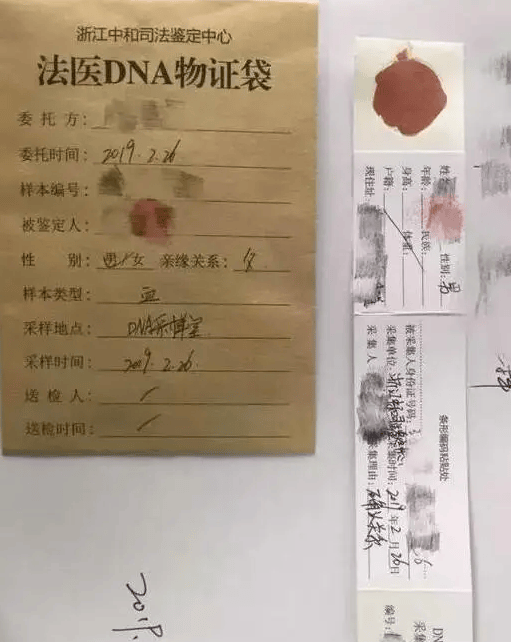 浙江中和司法鉴定中心
法医DNA物证袋
委托方：
委托时间：2019.2.26
样本编号：
被鉴定人：
性 别：男/女 亲缘关系：
样本类型：血
采样地点：DNA采样室
采样时间：2019.2.26.
送检人：/
送检时间：/
姓名 性别：男
年龄： 民族：
身高： 体重：
户籍：
现住址
条形编码粘贴处
被采集人身份证号码：
采集单位：浙江 采集时间：2019年2月26日
采集人 采集理由：确认关系
编号：
2019.